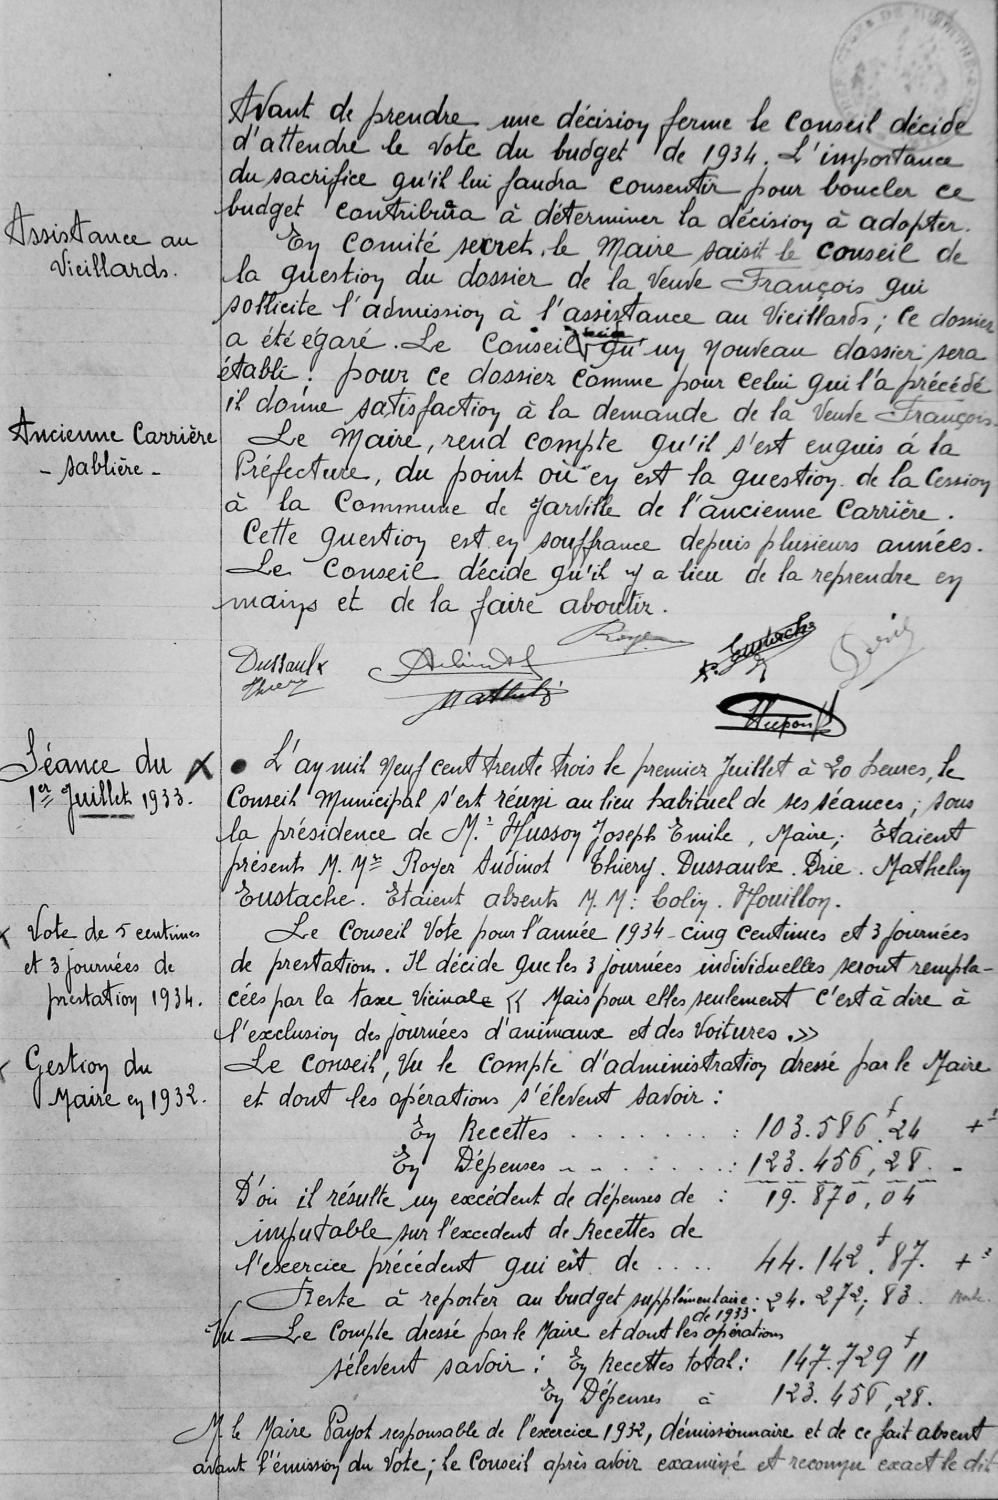 Avant de prendre une décision ferme le Conseil décide
d'attendre le vote du budget de 1934. L'importance
du sacrifice qu'il lui faudra consentir pour boucler ce
budget contribûra à déterminer la décision à adopter.
Assistance au
Vieillards.
En Comité secret, le Maire saisit le conseil de
la question du dossier de la Veuve François qui
sollicite l'admission à l'assistance au Vieillards; ce dossier
a été égaré. Le Conseil décide qu'un nouveau dossier sera
établi; pour ce dossier comme pour celui qui l'a précédé
il donne satisfaction à la demande de la Veuve François.
Ancienne Carrière
- Sablière -
Le Maire, rend compte qu'il s'est enquis à la
Préfecture, du point où en est la question de la Cession
à la Commune de Jarville de l'ancienne Carrière.
Cette question est en souffrance depuis plusieurs années.
Le Conseil décide qu'il y a lieu de la reprendre en
mains et de la faire aboutir.
Royer
Dussaulx
Thiery
Mathelin
Eustache
Séance du
1er Juillet 1933.
L'an mil neuf cent trente trois le premier Juillet à 20 heures, le
Conseil Municipal s'est réuni au lieu habituel de ses séances, sous
la présidence de M.r Husson Joseph Emile, Maire; Etaient
présents M. Mrs Royer Audinot Thiery. Dussaulx. Drie. Mathelin
Eustache. Etaient absents M. M: Colin. Houillon.
Vote de 5 centimes
et 3 journées de
prestation 1934.
Le Conseil Vote pour l'année 1934 - cinq centimes et 3 journées
de prestation. Il décide que les 3 journées individuelles seront rempla-
cées par la taxe Vicinale « Mais pour elles seulement c'est à dire à
l'exclusion des journées d'animaux et des Voitures.»
Gestion du
Maire en 1932.
Le Conseil, Vu le Compte d'administration dressé par le Maire
et dont les opérations s'élevent savoir :
En Recettes . . . . . . . : 103.586f.24 +
En Dépenses - - . . . . . : 123.456,28. -
D'où il résulte un excédent de dépenses de : 19.870,04
imputable sur l'excedent de Recettes de
l'exercice précédent qui est de .... 44.142f.87. +
Reste à reporter au budget supplémentaire de 1933: 24.272,83
Vu Le Compte dressé par le Maire et dont les opérations
sélevent savoir : En Recettes total : 147.729f11
En Dépenses à 123.456,28.
M. le Maire Payot responsable de l'exercice 1932, démissionnaire et de ce fait absent
avant l'émission du Vote; le Conseil après avoir examiné et reconnu exact le dit